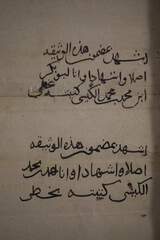 اشهد بمضمون هذه الوثيقه
اصلا واشهادا وانا ابو بكر
ابن محمد محمد الكبتي كتبته بخطي
اشهد بمضمون هذه الوثيقه
اصلا واشهادا وانا احمد محمد
الكبتي كتبته بخطي